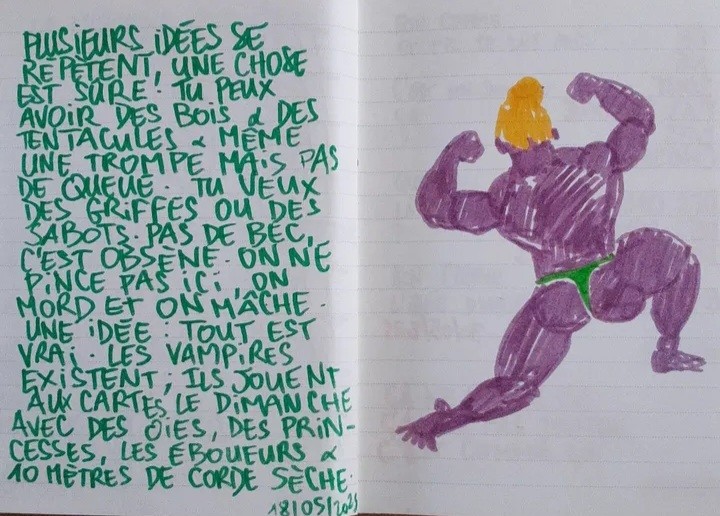 PLUSIEURS IDÉES SE
RÉPÈTENT, UNE CHOSE
EST SÛRE : TU PEUX
AVOIR DES BOIS & DES
TENTACULES & MÊME
UNE TROMPE MAIS PAS
DE QUEUE. TU VEUX
DES GRIFFES OU DES
SABOTS. PAS DE BEC,
C'EST OBSENE. ON NE
PINCE PAS ICI, ON
MORD ET ON MÂCHE.
UNE IDÉE : TOUT EST
VRAI. LES VAMPIRES
EXISTENT ; ILS JOUENT
AUX CARTES LE DIMANCHE
AVEC DES OIES, DES PRIN-
CESSES, LES ÉBOUEURS &
10 MÈTRES DE CORDE SÈCHE.
18/05/2025